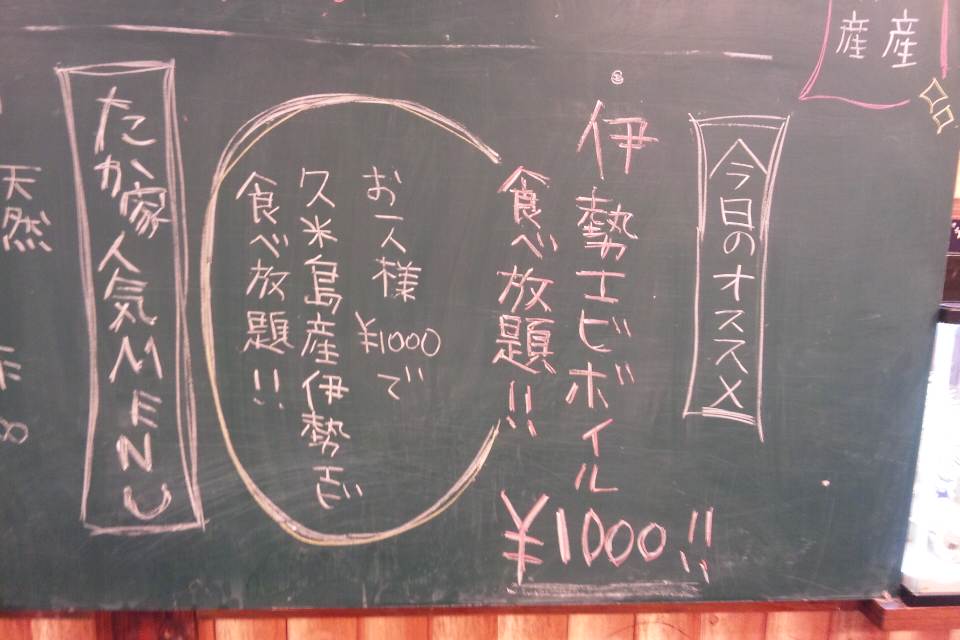 産
産
今日のオススメ
伊勢エビボイル
食べ放題!!
¥1000!!
お一人様
¥1000で
久米島産伊勢エビ
食べ放題!!
たか家人気MENU
天然